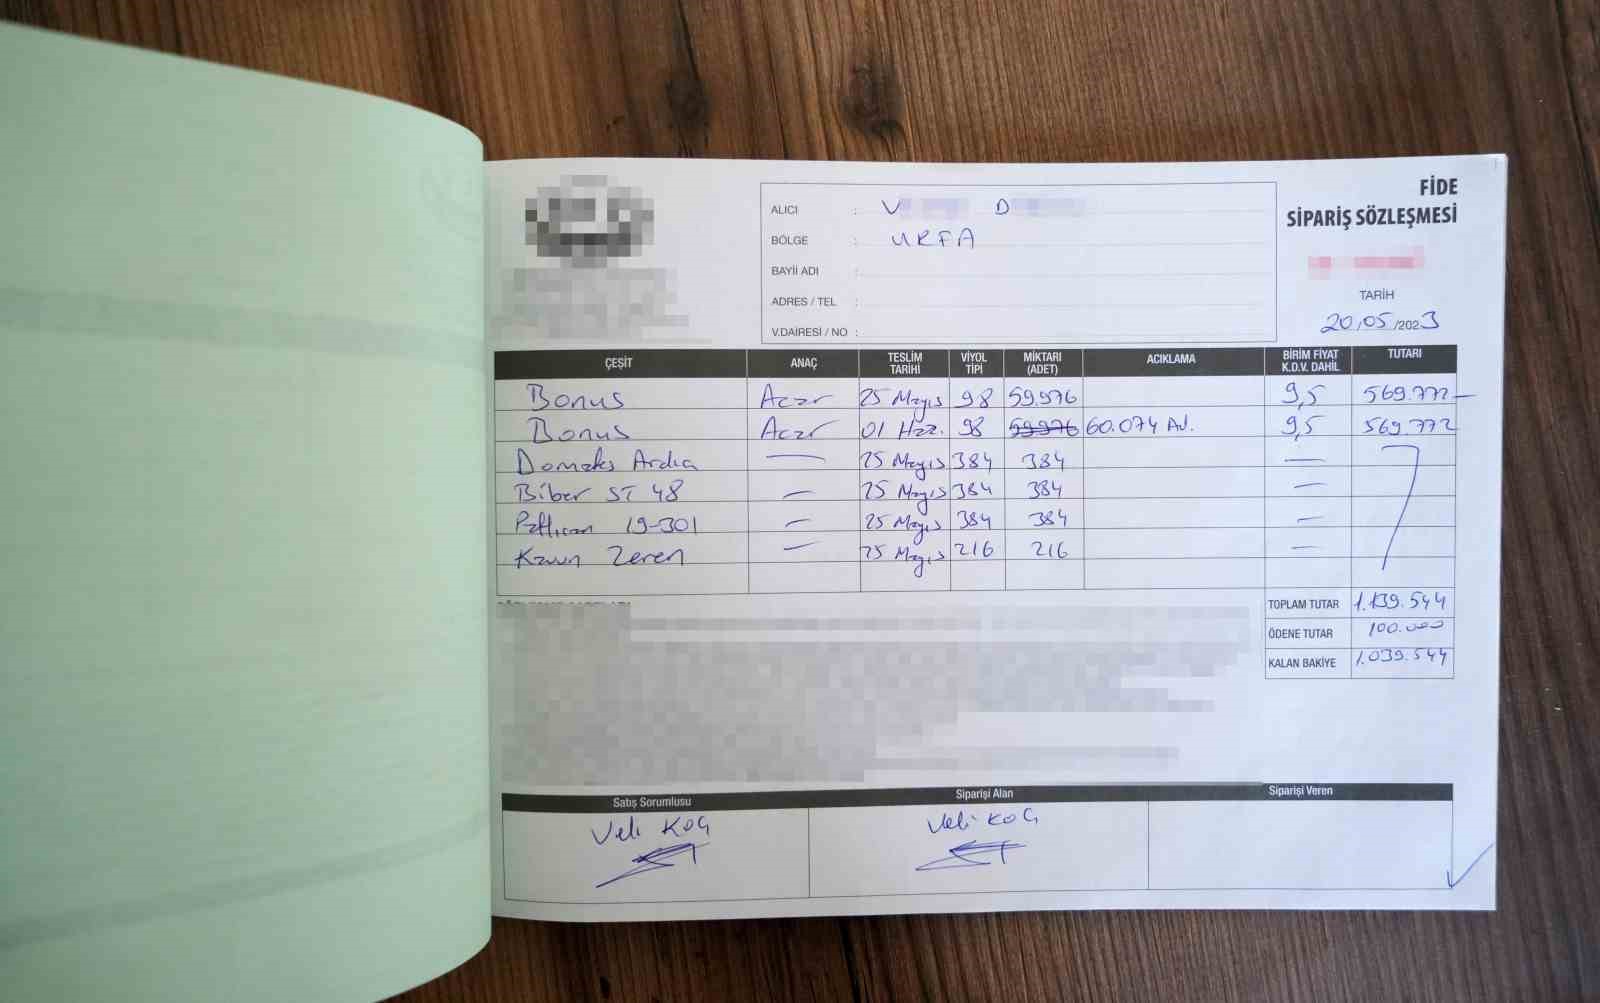 FİDE
SİPARİŞ SÖZLEŞMESİ
ALICI : V D
BÖLGE : URFA
BAYİİ ADI :
ADRES / TEL :
V.DAİRESİ / NO :
TARİH
20.05/2023
ÇEŞİT ANAÇ TESLİM TARİHİ VİYOL TİPİ MİKTARI (ADET) ACIKLAMA BİRİM FİYAT K.D.V. DAHİL TUTARI
Bonus Acar 25 Mayıs 98 59.976 9,5 569.772
Bonus Acar 01 Haz. 98 59.976 60.074 Ad. 9,5 569.772
Domates Ardıa — 25 Mayıs 384 384 —
Biber ST 48 — 25 Mayıs 384 384 —
Patlıcan 19-301 — 25 Mayıs 384 384 —
Kavun Zeren — 25 Mayıs 216 216 —
TOPLAM TUTAR 1.139.544
ÖDENE TUTAR 100.000
KALAN BAKİYE 1.039.544
Satış Sorumlusu Siparişi Alan Siparişi Veren
Veli KOÇ Veli KOÇ